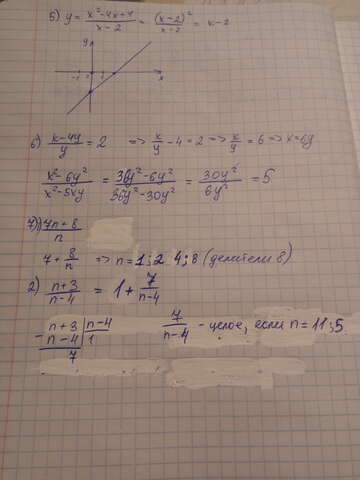 5) y = x²-4x+4 / x-2 = (x-2)² / x-2 = x-2
y
-1 1 x
6) x-4y / y = 2 => x/y - 4 = 2 => x/y = 6 => x=6y
x²-6y² / x²-5xy = 36y²-6y² / 36y²-30y² = 30y² / 6y² = 5
7) 1) 7n+8 / n
7 + 8/n => n = 1; 2 4; 8 (делители 8)
2) n+3 / n-4 = 1 + 7 / n-4
- n+3 | n-4
n-4 | 1
7
7 / n-4 - целое, если n = 11; 5.